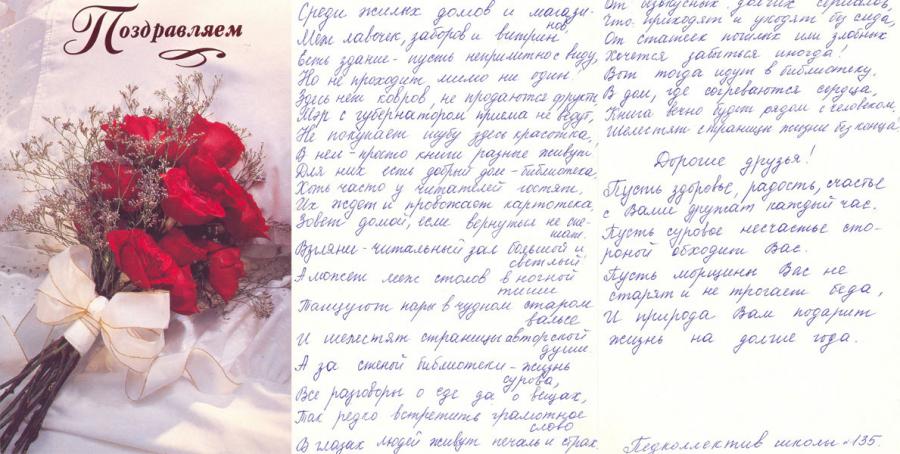 Поздравляем
Среди жилых домов и магази-
нов,
Меж лавочек, заборов и витрин
Есть здание - пусть неприметно с виду,
Но не проходит мимо ни один!
Здесь нет ковров, не продаются фрукты,
Мэр с губернатором приема не ведут,
Не покупает шубу здесь красотка,
В нем - просто книги разные живут.
Для них есть добрый дом - библиотека,
Хоть часто у читателей гостят.
Их ждет и провожает картотека,
Зовет домой, если вернуть не спе-
шат.
Взгляни - читальный зал большой и
светлый
А может меж столов в ночной
тиши
Танцуют пары в чудном старом
вальсе
И шелестят страницы авторской
души.
А за стеной библиотеки - жизнь
сурова,
Все разговоры о еде да о вещах,
Так редко встретить грамотное
слово
В глазах людей живут печаль и страх.
От безвкусных долгих сериалов,
Что приходят и уходят без следа,
От статеек пошлых или злобных
Хочется забыться иногда!
Вот тогда идут в библиотеку,
В дом, где согреваются сердца,
Книга вечно будет рядом с человеком,
Шелестят страницы жизни без конца!
Дорогие друзья!
Пусть здоровье, радость, счастье
с Вами дружат каждый час.
Пусть суровое несчастье сто-
роной обходит Вас.
Пусть морщины Вас не
старят и не трогает беда,
И природа Вам подарит
жизнь на долгие года.
Педколлектив школы №135.